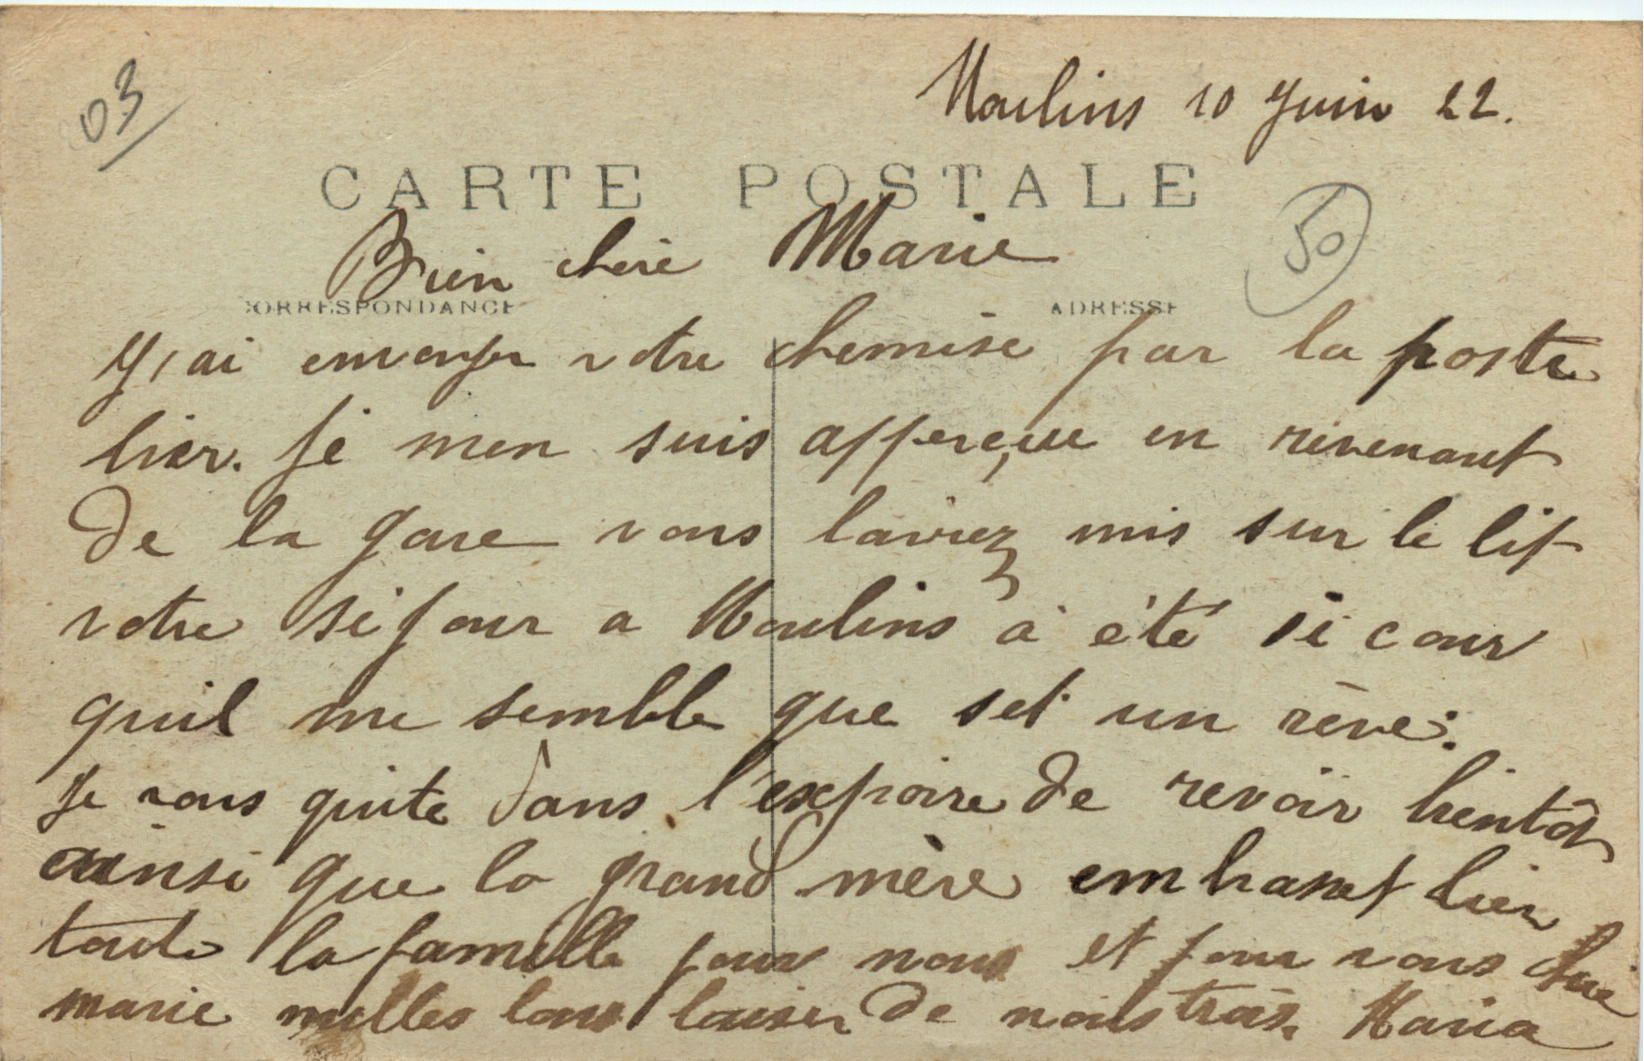 03
Moulins 10 Juin 22.
CARTE POSTALE
50
Bien chère Marie
CORRESPONDANCE
ADRESSE
J,ai envoyer votre chemise par la poste
hier. Je men suis apperçue en revenant
de la gare vous laviez mis sur le lit
votre séjour a Moulins à été si cour
quil me semble que set un rêve.
Je vous quite dans l'expoire de revoir bientôt
ainsi que la grand mère embrasset bien
toute la famille pour nous et pour vous chère
marie milles bons baiser de nous trois. Maria